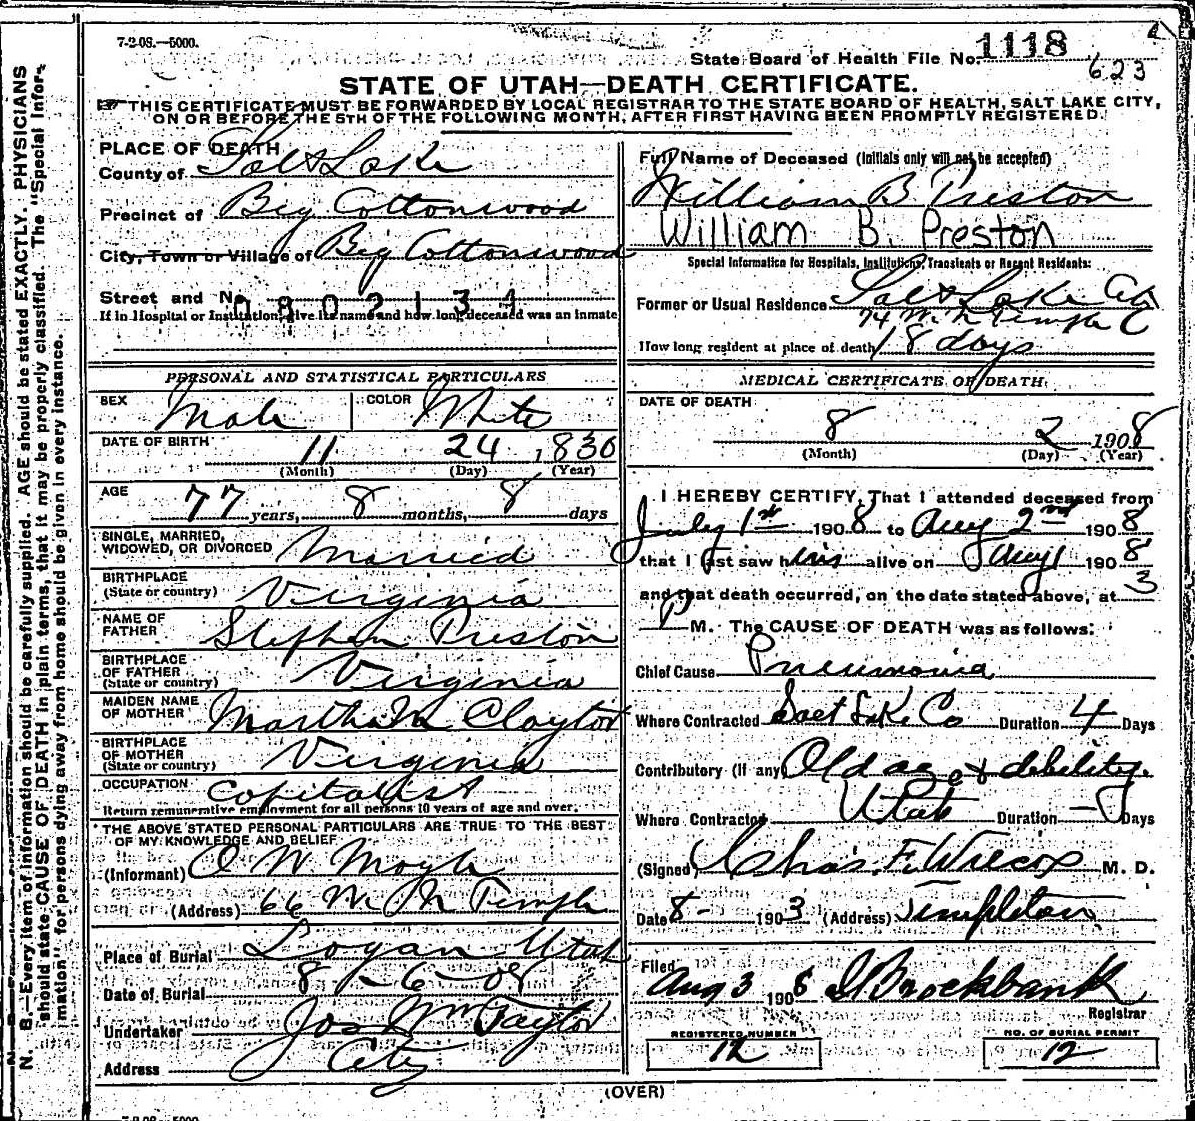 7-2-08.—5000.
State Board of Health File No. 1118
623
STATE OF UTAH—DEATH CERTIFICATE.
THIS CERTIFICATE MUST BE FORWARDED BY LOCAL REGISTRAR TO THE STATE BOARD OF HEALTH, SALT LAKE CITY,
ON OR BEFORE THE 5TH OF THE FOLLOWING MONTH, AFTER FIRST HAVING BEEN PROMPTLY REGISTERED.
N. B.—Every item of information should be carefully supplied. AGE should be stated EXACTLY. PHYSICIANS
should state CAUSE OF DEATH in plain terms, that it may be properly classified. The "Special Infor-
mation" for persons dying away from home should be given in every instance.
PLACE OF DEATH
County of Salt Lake
Precinct of Big Cottonwood
City, Town or Village of Big Cottonwood
Street and No.
If in Hospital or Institution, give its name and how long deceased was an inmate
PERSONAL AND STATISTICAL PARTICULARS
SEX Male COLOR White
DATE OF BIRTH 11 24 1830
(Month) (Day) (Year)
AGE
77 years, 8 months, 8 days
SINGLE, MARRIED,
WIDOWED, OR DIVORCED Married
BIRTHPLACE
(State or country) Virginia
NAME OF
FATHER Stephen Preston
BIRTHPLACE
OF FATHER
(State or country) Virginia
MAIDEN NAME
OF MOTHER Martha M Claytor
BIRTHPLACE
OF MOTHER
(State or country) Virginia
OCCUPATION Capitalist
Return remunerative employment for all persons 10 years of age and over.
THE ABOVE STATED PERSONAL PARTICULARS ARE TRUE TO THE BEST
OF MY KNOWLEDGE AND BELIEF
(Informant) O W Moyle
(Address) 66 W N Temple
Place of Burial Logan Utah
Date of Burial 8-6-08
Undertaker Jos Wm Taylor
Address City
Full Name of Deceased (Initials only will not be accepted)
William B Preston
William B. Preston
Special Information for Hospitals, Institutions, Transients or Recent Residents:
Former or Usual Residence Salt Lake City
74 W. N Temple
How long resident at place of death 18 days
MEDICAL CERTIFICATE OF DEATH
DATE OF DEATH
8 2 1908
(Month) (Day) (Year)
I HEREBY CERTIFY, That I attended deceased from
July 1st 1908 to Aug 2nd 1908
that I last saw him alive on Aug 1908
and that death occurred, on the date stated above, at 3
P M. The CAUSE OF DEATH was as follows:
Chief Cause Pneumonia
Where Contracted Salt Lake Co Duration 4 Days
Contributory (if any) Old age & debility
Where Contracted Utah Duration — Days
(Signed) Chas. F. Wilcox M. D.
Date 8- 1903 (Address) Templeton
Filed
Aug 3 1908 Brockbank
Registrar
REGISTERED NUMBER
12
NO. OF BURIAL PERMIT
12
(OVER)
7-2-08.—5000.